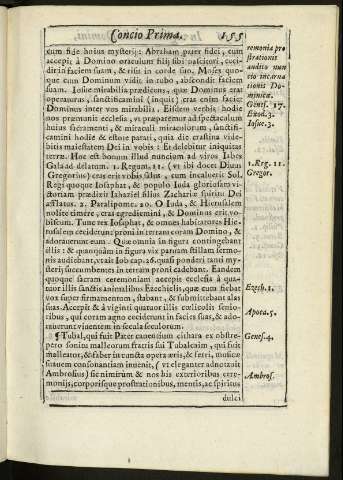 Concio Prima. 155
cum fide huius mysterij: Abraham pater fidei, cum
accepit à Domino oraculum filij sibi nascituri, ceci-
dit in faciem suam, & risit in corde suo. Moses quo-
que cum Dominum vidit in rubo, abscondit faciem
suam. Iosue mirabilia prædicens, quæ Dominus erat
operaturus, sanctificamini (inquit) cras enim faciet
Dominus inter vos mirabilia. Eisdem verbis hodie
nos præmunit ecclesia, vt præparemur ad spectaculum
huius sacramenti, & miraculi miraculorum, sanctifi-
camini hodie & estote parati, quia die crastina vide-
bitis maiestatem Dei in vobis: Et delebitur iniquitas
terræ. Hoc est bonum illud nuncium ad viros Iabes
Galaad delatum. 1. Regum. 11. (vt ibi docet Diuus
Gregorius) cras erit vobis salus, cum incaluerit Sol.
Regi quoque Iosaphat, & populo Iuda gloriosam vi-
ctoriam prædixit Iahaziel filius Zachariæ spiritu Dei
afflatus. 2. Paralipome. 20. O Iuda, & Hierusalem
nolite timere, cras egrediemini, & Dominus erit vo-
biscum. Tunc rex Iosaphat, & omnes habitatores Hie-
rusalem ceciderunt proni in terram coram Domino, &
adorauerunt eum. Quæ omnia in figura contingebant
illis: & quanquam in figura vix paruam stillam sermo-
nis audiebant, vt ait Iob cap. 26. quasi ponderi tanti my-
sterij succumbentes in terram proni cadebant. Eandem
quoque sacram ceremoniam accepit ecclesia à qua-
tuor illis sanctis animalibus Ezechielis, quæ cum fiebat
vox super firmamentum, stabant, & submittebant alas
suas. Accepit & à viginti quatuor illis cœlicolis senio-
ribus, qui coram agno ceciderunt in facies suas, & ado-
rauerunt viuentem in secula seculorum.
¶ Iubal, qui fuit Pater canentium cithara ex obstre-
pero sonitu malleorum fratris sui Tubalcaim, qui fuit
malleator, & faber in cuncta opera æris, & ferri, musicæ
suauem consonantiam inuenit, (vt eleganter adnotauit
Ambrosius) sic nimirum & nos his exterioribus cere-
monijs, corporisque prostrationibus, mentis, ac spiritus
dulci
remonia pro
strationis
audito nun
cio incarna
tionis Do-
minicæ.
Genes. 17.
Exod. 3.
Iosue. 3.
1. Reg. 11.
Gregor.
Ezech. 1.
Apoca. 5.
Genes. 4.
Ambros.